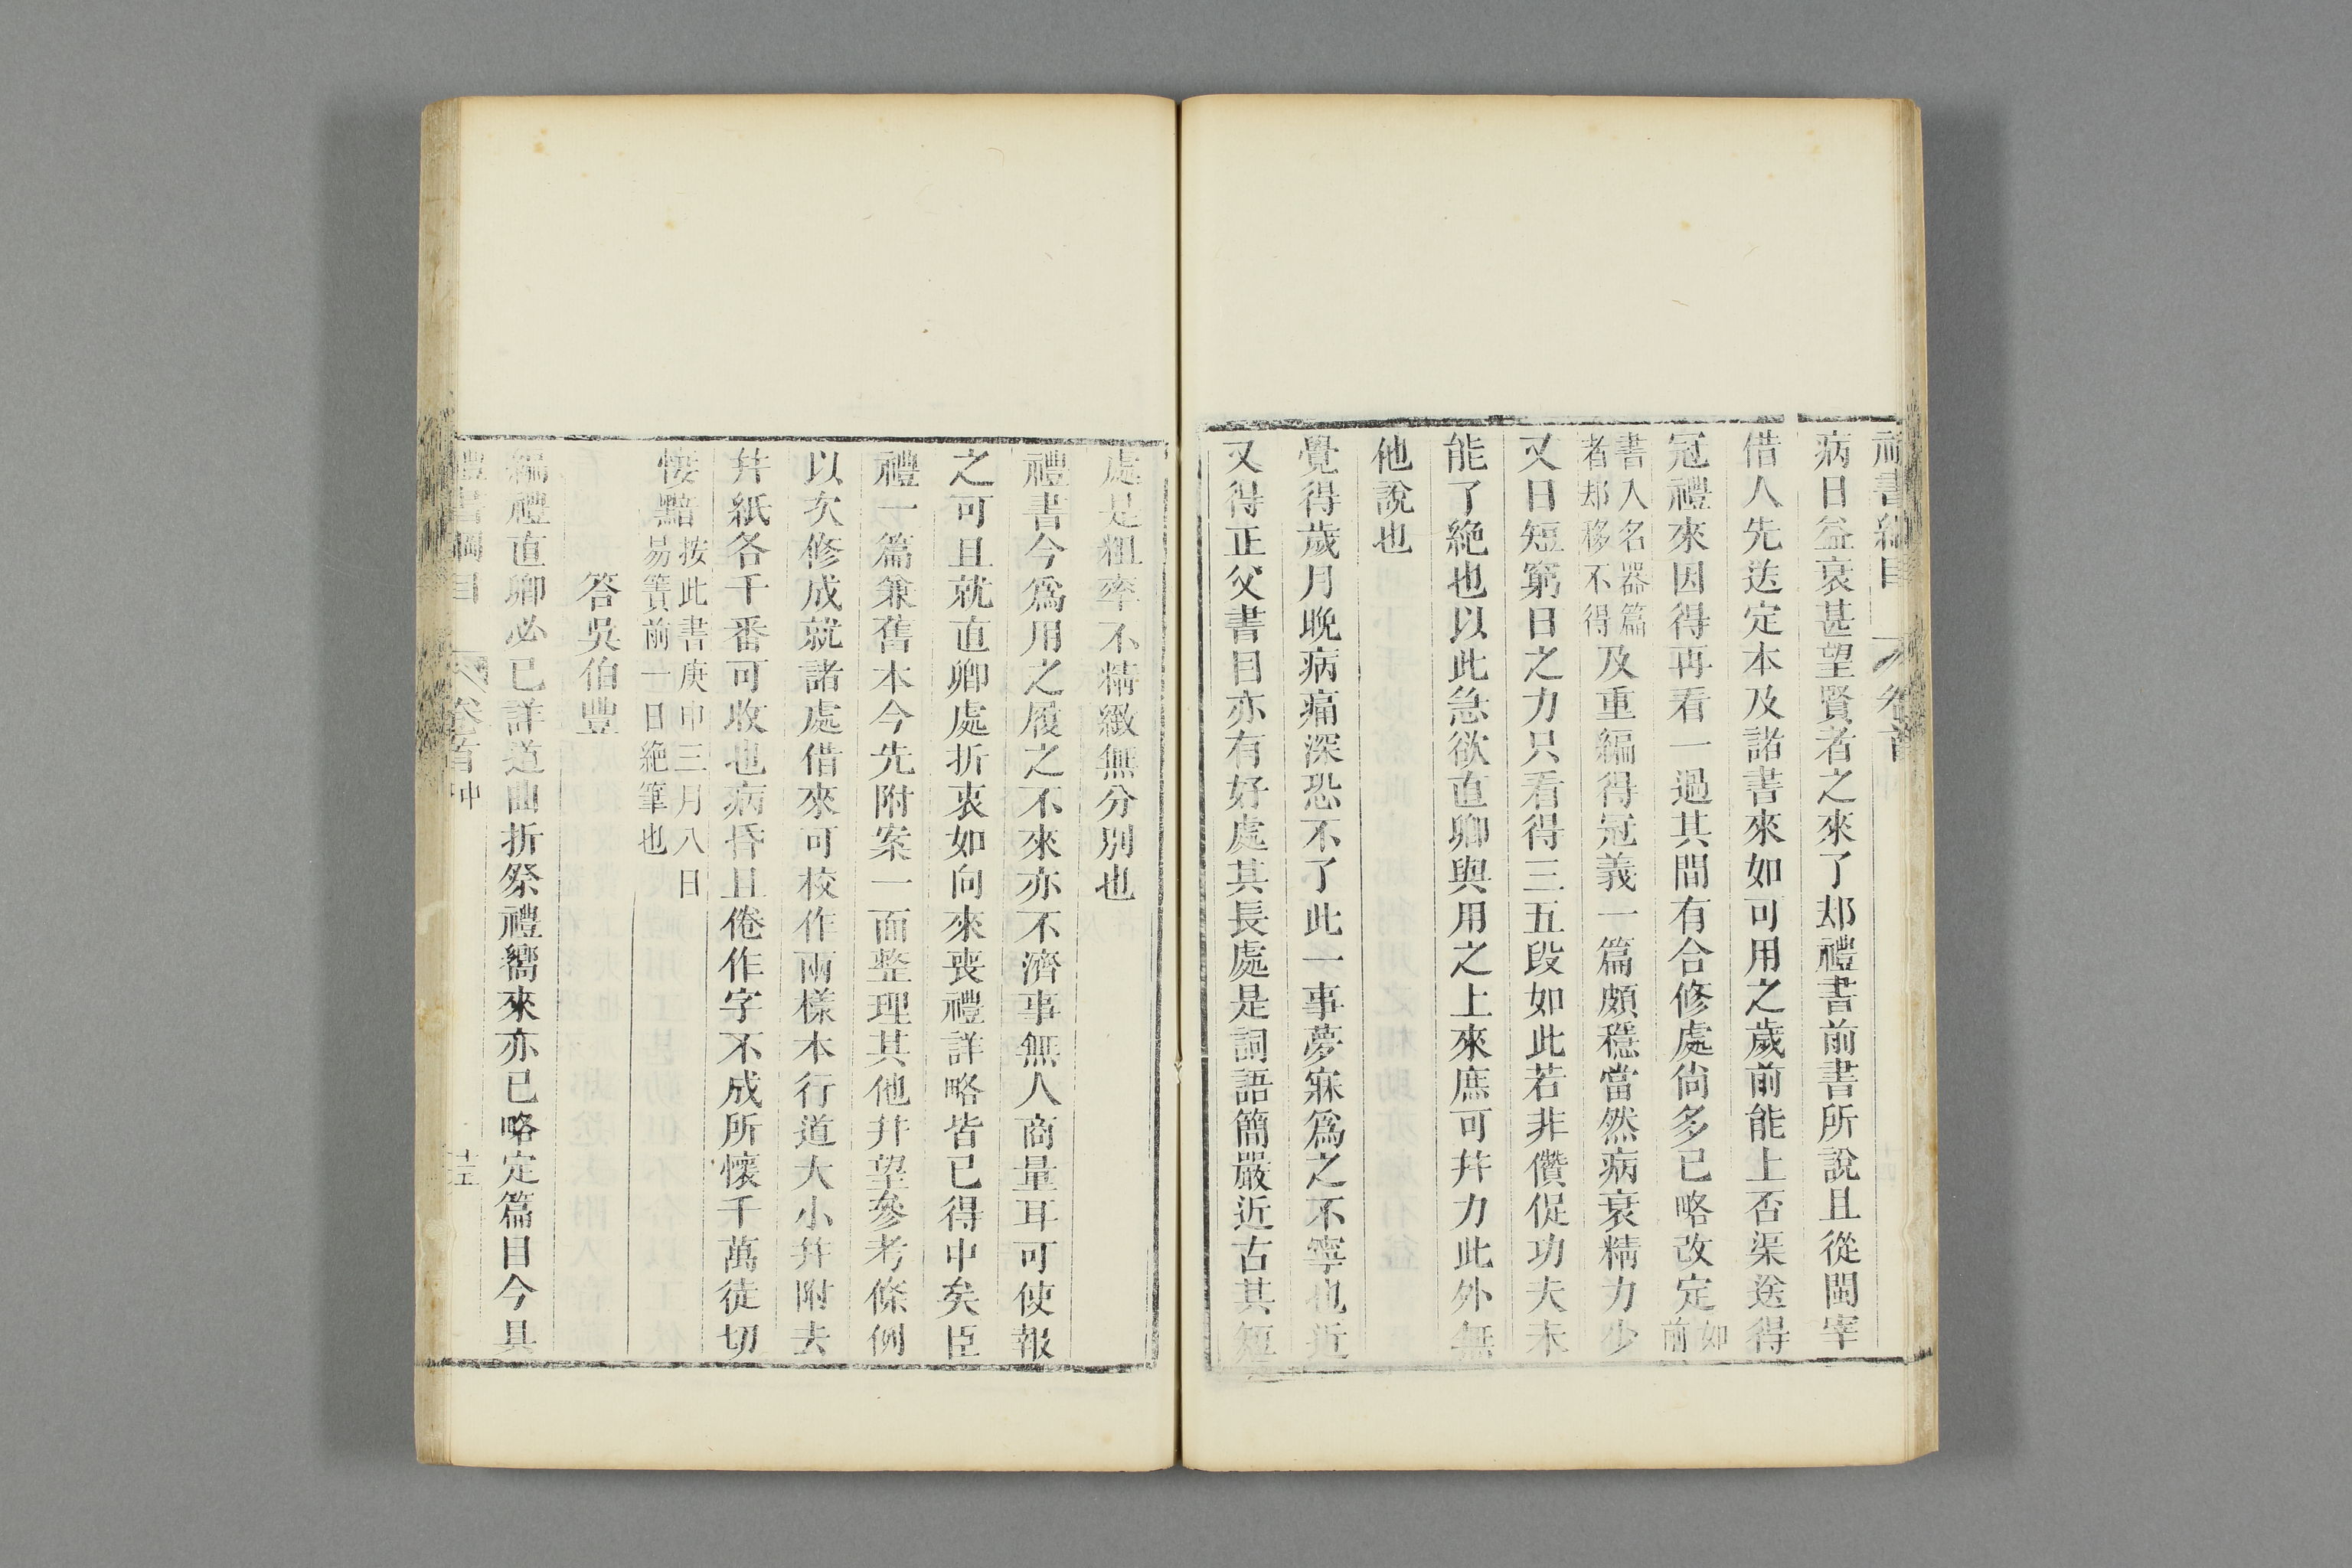 禮書綱目 卷首
病日益衰甚望賢者之來了却禮書前書所說且從閩宰
借人先送定本及諸書來如可用之歲前能上否渠送得
冠禮來因得再看一過其間有合修處尙多已略改定如前
書入名器篇者却移不得及重編得冠義一篇頗穩當然病衰精力少
又日短窮日之力只看得三五段如此若非儹促功夫未
能了絶也以此急欲直卿與用之上來庶可幷力此外無
他說也
覺得歲月晚病痛深恐不了此一事夢寐爲之不寧也近
又得正父書目亦有好處其長處是詞語簡嚴近古其短
處是粗率不精緻無分別也
禮書今爲用之履之不來亦不濟事無人商量耳可使報
之可且就直卿處折衷如向來喪禮詳略皆已得中矣臣
禮一篇兼舊本今先附案一面整理其他幷望參考條例
以次修成就諸處借來可校作兩樣本行道大小幷附去
幷紙各千番可收也病昏且倦作字不成所懷千萬徒切
悽黯按此書庚申三月八日易簀前一日絶筆也
答吳伯豐
編禮直卿必已詳道曲折祭禮嚮來亦已略定篇目今具
禮書綱目 卷首中 廿五